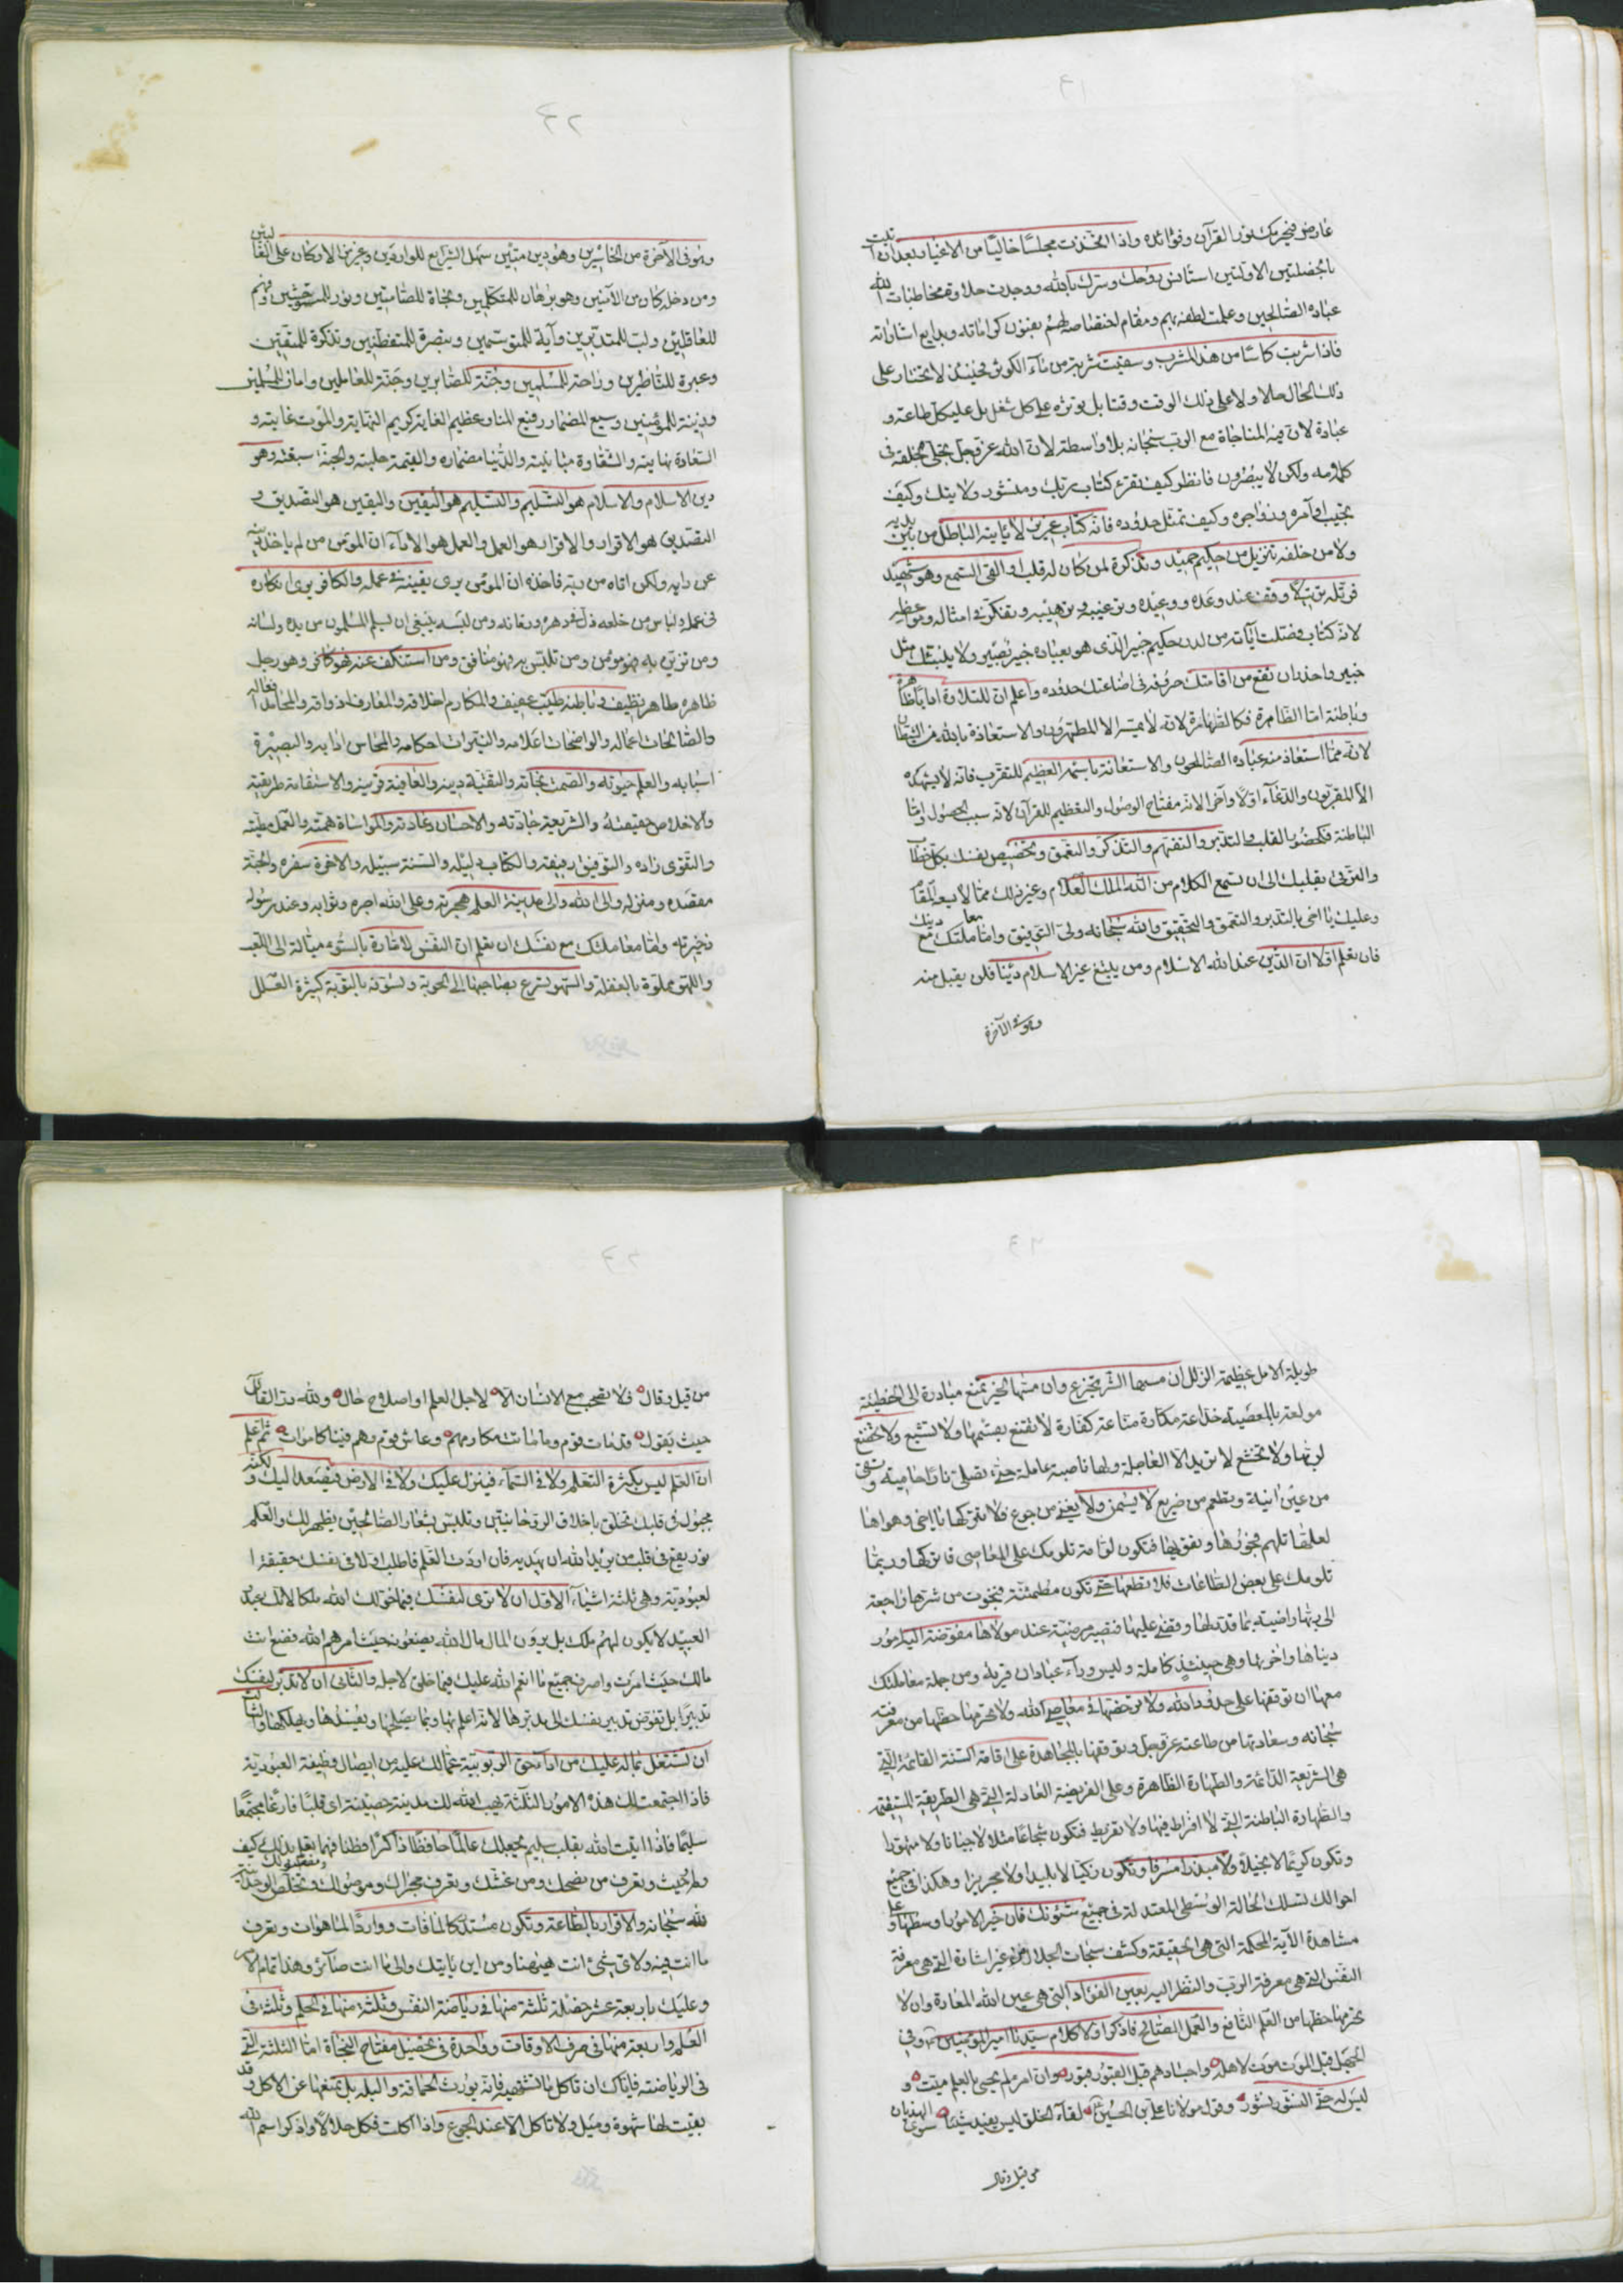 ٤١
عارض فيخبرك بنور القرآن وفوائده واذا اتخذت مجلسًا خاليًا من الاغيار بعد ان اتيت
بالخصلتين الاولتين استانس روحك وسرك بالله ووجدت حلاوة مخاطبات الله
عباده الصالحين وعلمت لطفه بهم ومقام اختصاصه لهم بفنون كراماته وبدايع اشاراته
فاذا شربت كاسًا من هذا المشرب وسقيت شربة من ماء الكوثر فحينئذ لا تختار على
ذلك الحال حالا ولا على ذلك الوقت وقتا بل تؤثره على كل شغل بل على كل طاعة و
عبادة لان فيه المناجاة مع الرب سبحانه بلا واسطة لان الله عز وجل تجلى لخلقه في
كلامه ولكن لا يبصرون فانظر كيف تقرء كتاب ربك ومنشور ولايتك وكيف
تجيب اوامره ونواهيه وكيف تمتثل حدوده فانه كتاب عزيز لا ياتيه الباطل من بين يديه
ولا من خلفه تنزيل من حكيم حميد وتذكرة لمن كان له قلب او القى السمع وهو شهيد
فرتله ترتيلًا وقف عند وعده ووعيده وتفكر في امثاله ومواعظه
لانه كتاب فصلت آياته من لدن حكيم خبير الذي هو بعباده خبير بصير ولا ينبئك مثل
خبير واحذر ان تقع من اقامتك حروفه في اضاعتك حدوده واعلم ان للتلاوة ادابًا ظاهرة
وباطنة اما الظاهرة فكالطهارة لانه لا يمسه الا المطهرون والاستعاذة بالله من الشيطان
لانه مما استعاذ منه عباده الصالحون والاستعانة باسمه العظيم للتقرب فانه لا يشهده
الا المقربون والدعاء اولا وآخرا لانه مفتاح الوصول والتعظيم للقرآن لانه سبب الحصول واما
الباطنة فكحضور القلب والتدبر والتفهم والتذكر والتعمق وتخصيص نفسك بكل خطاب
والترقي بقلبك الى ان تسمع الكلام من الله الملك العلام وغير ذلك مما لا يسعه المقام
وعليك يا اخي بالتدبر والتعمق والتحقيق والله سبحانه ولي التوفيق واما معاملتك مع دينك
فان تعلم اولا ان الدين عند الله الاسلام ومن يبتغ غير الاسلام دينا فلن يقبل منه
وهو في الآخرة
٤٢
وهو في الآخرة من الخاسرين وهو دين متين سهل الشرايع للواردين وعزيز الاركان على القائسين
ومن دخله كان من الآمنين وهو برهان للمتكلمين ونجاة للصامتين ونور للمستوحشين وفهم
للعاقلين ولب للمتدبرين وآية للمتوسمين وتبصرة للمتفطنين وتذكرة للمتقين
وعبرة للناظرين وراحة للمسلمين وجنة للصابرين وجنة للعاملين وامان للمسلمين
وزينة للمؤمنين وسيع المضمار رفيع المنار عظيم الغاية كريم النهاية والموت غايته و
السعادة نهايته والشقاوة والدنيا مضماره والقيمة حلبته والجنة سبقته وهو
دين الاسلام والاسلام هو التسليم والتسليم هو اليقين واليقين هو التصديق و
التصديق هو الاقرار والاقرار هو العمل والعمل هو الاداء ان المؤمن من لم ياخذ دينه
عن رايه ولكن اتاه من ربه فاخذه ان المؤمن يرى يقينه في عمله والكافر يرى انكاره
في عمله ولباس من خلعه ذل في دهره وزمانه ومن لبسه ينبغي ان يسلم المسلمون من يده ولسانه
ومن تزين به فهو مؤمن ومن تلبس به فهو منافق ومن استنكف عنه فهو كافر وهو رجل
ظاهره طاهر نظيف وباطنه طيب عفيف والمكارم اخلاقه والمعارف اذواقه والمحامد افعاله
والصالحات اعماله والواضحات اعلامه والنيرات احكامه والمحاسن ادابه والبصيرة
اسبابه والعلم حيوته والصمت نجاته والتقية دينه والعافية قرينه والاستقامة طريقته
والاخلاص حقيقته والشريعة جادته والاحسان عادته والمواساة همته والعمل مطيته
والتقوى زاده والتوفيق رفيقه والكتاب دليله والسنة سبيله والاخرة سفره والجنة
مقصده ومنزله والى الله والى مدينة العلم هجرته وعلى الله اجره وثوابه وعند رسوله
ذخيرته واما معاملتك مع نفسك ان تعلم ان النفس لامارة بالسوء ميالة الى اللعب
واللهو مملوة بالغفلة والسهو تسرع بصاحبها الى الحوبة وتسوفه بالتوبة كثيرة العلل
٤٣
طويلة الامل عظيمة الزلل ان مسها الشر تجزع وان مسها الخير تمنع مبادرة الى الخطيئة
مولعة بالمعصية خداعة مكارة مناعة كفارة لا تقنع بقسمها ولا تشبع ولا تخضع
لربها ولا تخشع لا تريد الا العاجلة ولها ناصبة عاملة حتى تصلى نارًا حامية وتسقى
من عين انية وتطعم من ضريع لا يسمن ولا يغني من جوع فلا تتركها يا اخي وهواها
لعلها تلهم فجورها وتقويها فتكون لوامة تلومك على المعاصي فاتركها وربما
تلومك على بعض الطاعات فلا تطعها حتى تكون مطمئنة فنجوت من شرها راجعة
الى ربها راضية بما قدر لها وقضى عليها فتصير مرضية عند مولاها مفوضة اليه امور
دنياها واخريها وهي حينئذ كاملة وليس وراء عبادان قرية ومن جملة معاملتك
معها ان توقفها على حدود الله ولا ترخصها في معاصي الله ولا تحرمها حظها من معرفته
سبحانه وسعادتها من طاعته عز وجل وتوقفها بالمجاهدة على اقامة السنة القائمة التي
هي الشريعة الدائمة والطهارة الظاهرة وعلى الفريضة العادلة التي هي الطريقة المستقيمة
والطهارة الباطنة التي لا افراط فيها ولا تفريط فتكون شجاعًا مثلا لا جبانا ولا متهورا
وتكون كريمًا لا بخيلا ولا مبذرا مسرفا وتكون زكيا لا بليدا ولا جربزا وهكذا في جميع
احوالك لتسلك الحالة الوسطى المعتدلة في جميع شئونك فان خير الامور اوسطها وعلى
مشاهدة الآية المحكمة التي هي الحقيقة وكشف سبحات الجلال من غير اشارة التي هي معرفة
النفس التي هي معرفة الرب والنظر اليه بعين الفؤاد التي هي عين الله المعارة وان لا
تحرمها حظها من العلم النافع والعمل الصالح فاذكر اولا كلام سيدنا امير المؤمنين وفي
الجهل قبل الموت موت لاهله واجسادهم قبل القبور قبور وان امرء لم يحيى بالعلم ميت و
ليس له حتى النشور نشور وقول مولانا علي بن الحسين لقاء الخلق ليس يفيد شيئا سوى الهذيان
من قيل وقال
٤٤
من قيل وقال فلا تصحب مع الانسان الا لاجل العلم او اصلاح حال ولله در القائل
حيث يقول قد مات قوم وما ماتت مكارمهم وعاش قوم وهم فينا كاموات ثم اعلم
ان العلم ليس بكثرة التعلم ولا في السماء فينزل عليك ولا في الارض فيصعد اليك ولكنه
مجبول في قلبك تخلق باخلاق الروحانيين وتلبس بشعار الصالحين يظهر لك والعلم
نور يقع في قلب من يريد الله ان يهديه فان اردت العلم فاطلب اولا في نفسك حقيقة ا
لعبودية وهي ثلثة اشياء الاول ان لا ترى لنفسك فيما خولك الله ملكا لانك عبد
العبيد لا يكون لهم ملك بل يرون المال مال الله يضعونه حيث امرهم الله فضع انت
مالك حيث امرت واصرف جميع ما انعم الله عليك فيما خلق لاجله والثاني ان لا تدبر لنفسك
تدبيرًا بل تفوض تدبير نفسك الى مدبرها لانه اعلم بها وبما يصلحها ويفسدها ويهلكها والثالث
ان تشتغل بما له عليك من اداء حق الربوبية عما لك عليه من ايصال وظيفة العبودية
فاذا اجتمعت لك هذه الامور الثلثة يهب الله لك مدينة حصينة اي قلبًا فارغًا مجتمعًا
سليمًا فاذا اتيت الله بقلب سليم يجعلك عالمًا حافظًا ذاكرًا فطنا فهما تعلم بذلك كيف
ولم وحيث وتعرف من نصحك ومن غشك وتعرف مجراك وموصولك ومفصولك وتخلص الوحدانية
لله سبحانه والاقرار بالطاعة وتكون مستدركًا لما فات وواردًا لما هو ات وتعرف
ما انت فيه ولاي شيء انت هيهنا ومن اين ياتيك والى ما انت صائر وهذا تمام الامر
وعليك باربعة عشر خصلة ثلثة منها في رياضة النفس وثلثة منها في الحلم وثلثة في
العلم واربعة منها في صرف الاوقات وواحدة في تحصيل مفتاح النجاة اما الثلثة التي
في الرياضة فاياك ان تاكل ما لا تشتهيه فانه يورث الحماقة والبله بل تمنعها عن الاكل وقد
بقيت لها شهوة وميل ولا تاكل الا عند الجوع واذا اكلت فكل حلالا واذكر اسم الله